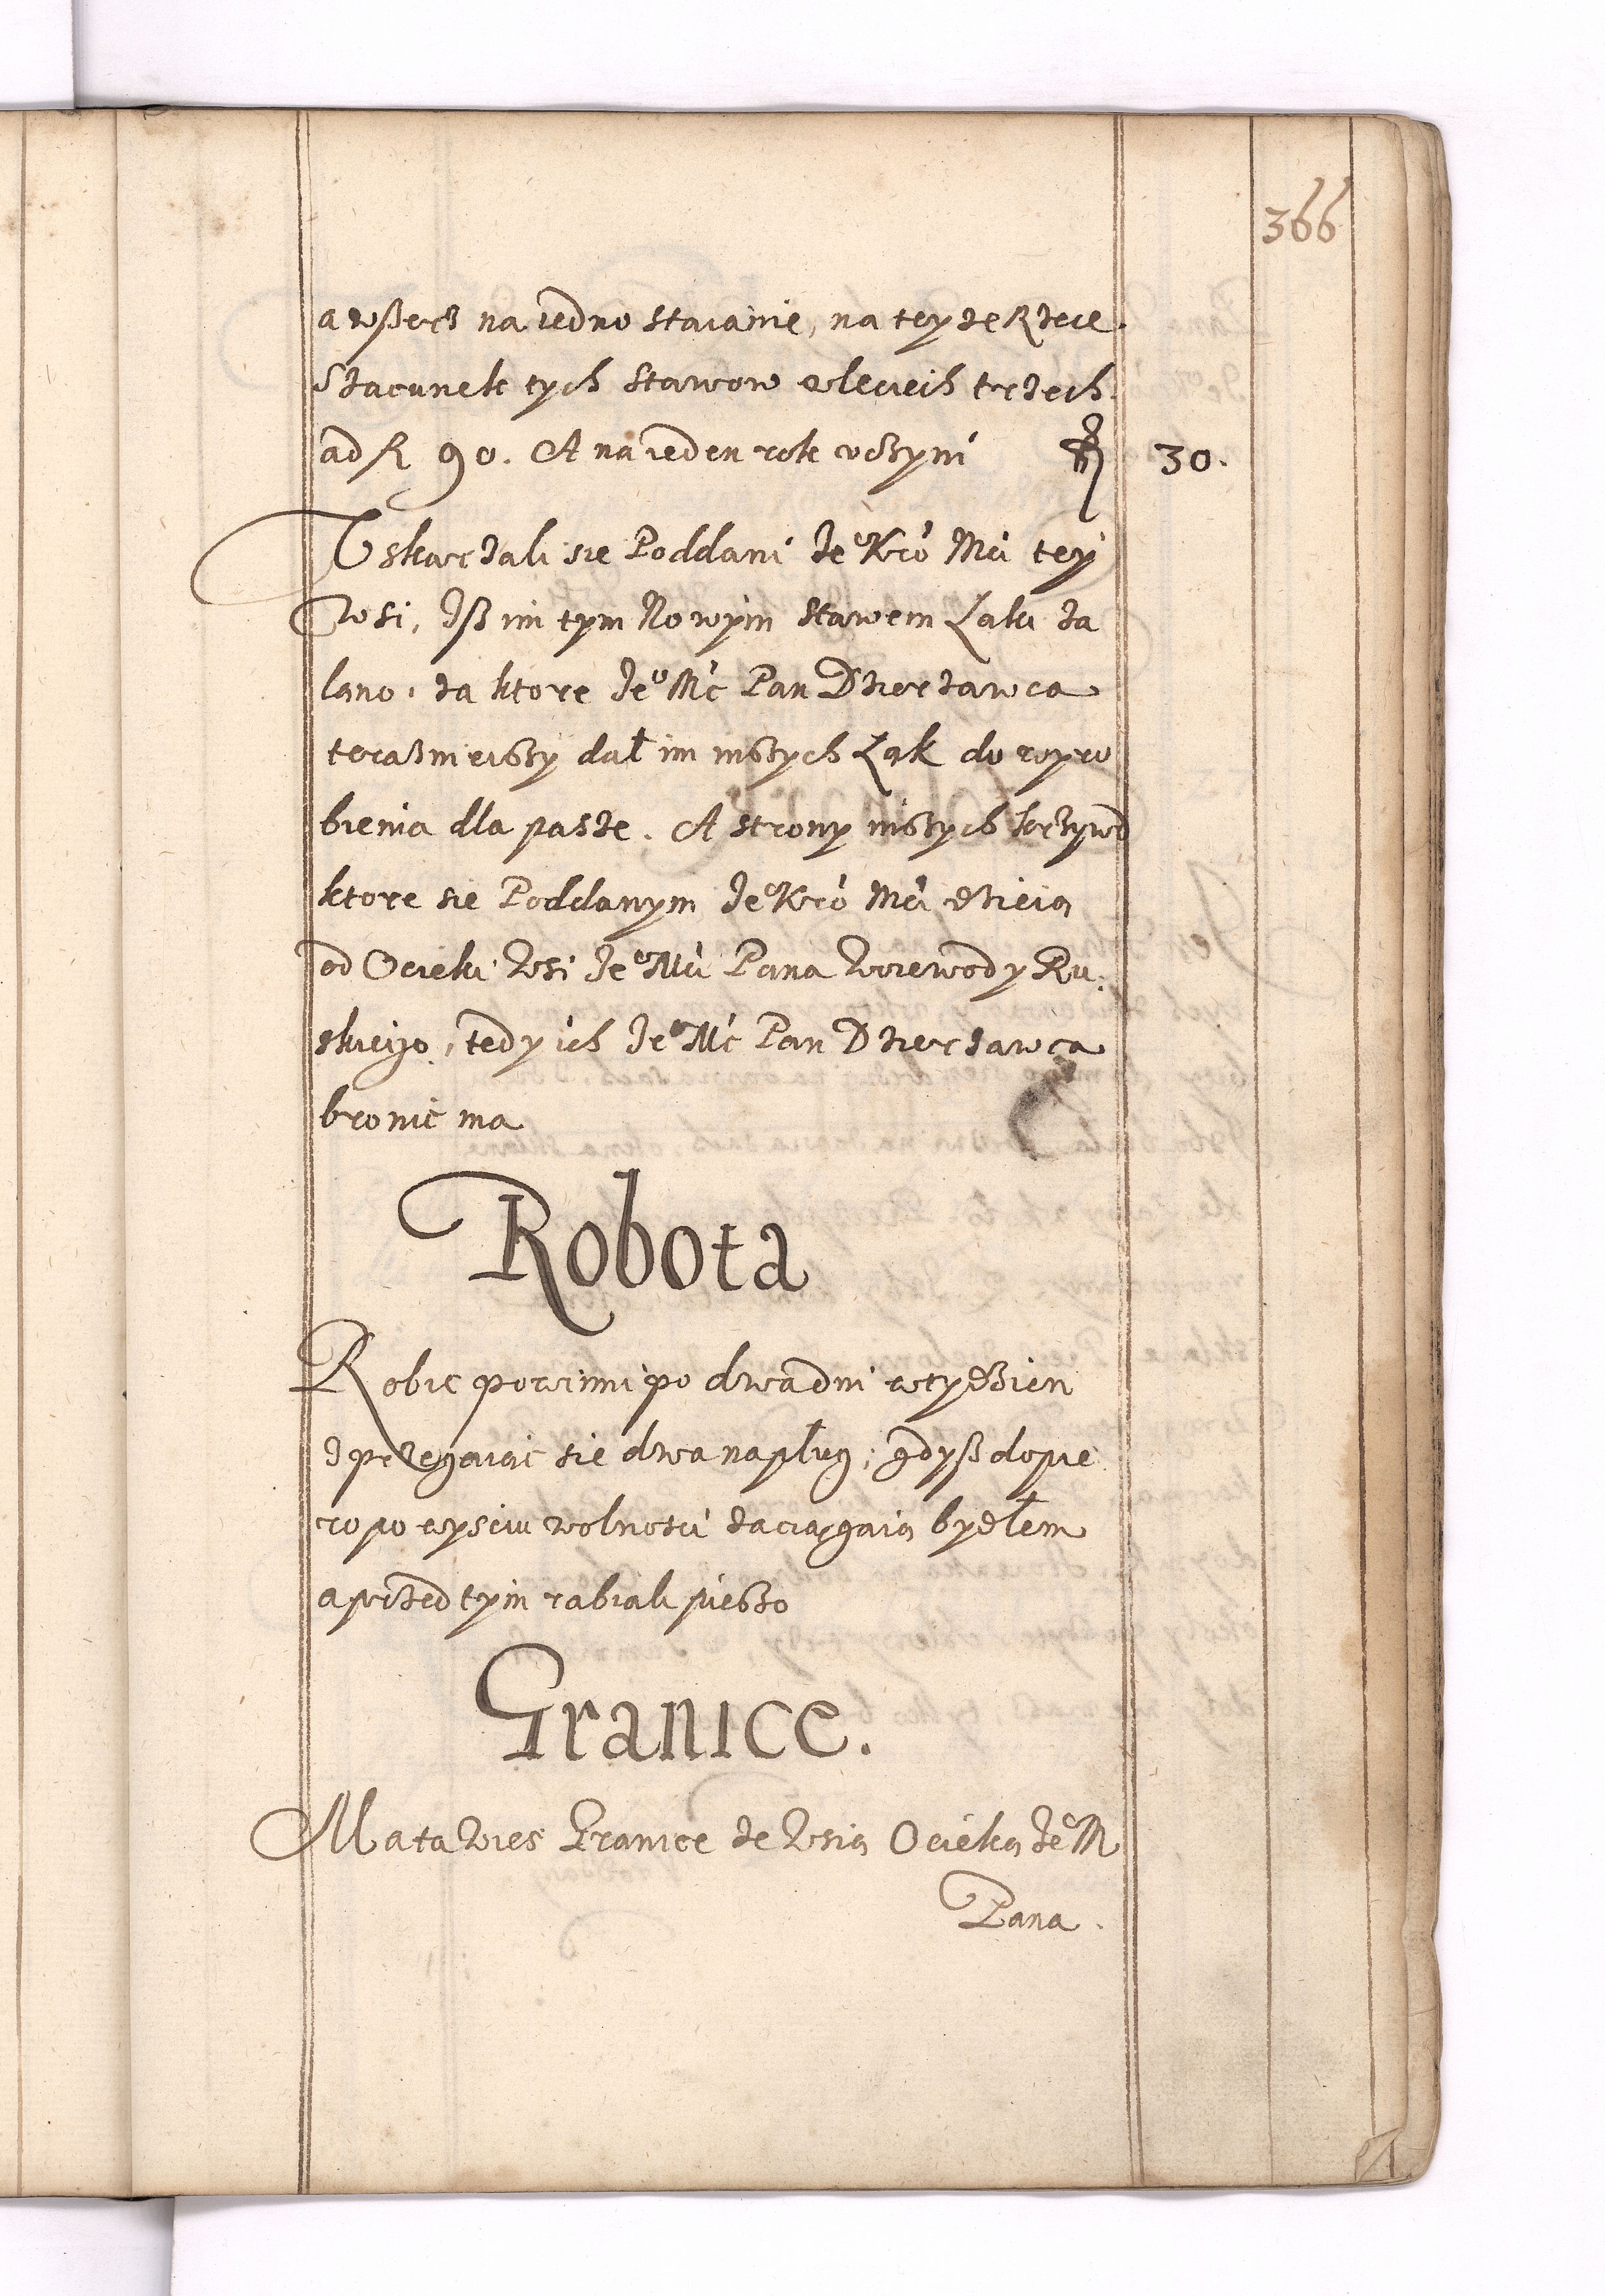 366
a wßerz na iedno staianie, na teyze Rzece.
Szacunek tych stawow wleciech trzech.
ad fl 90. A na ieden rok vczyni fl 30.
Uskarzali sie Poddani Jeº Kró Mći tey
Wsi, Iß im tym Nowym stawem Łaki za
lano, za ktore Jeº Mć Pan Dzierzawca
teraßnieiszy dał im inszych Łąk do wyro
bienia dla pasze. A strony inszych krzywd
ktore sie Poddanym Jeº Kró Mći dzieią
od Ocieki Wsi Jeº Mći Pana Woiewody Ru.
skieigo, tedy ich Jeº Mć Pan Dzierzawca
bronić ma
Robota
Robic powinni po dwa dni w tydzien
zprzegaiąc sie dwa na pług, gdyß dopie
ro po wysciu wolnosci zaciągaią bydłem
a przed tym rabiali pieszo
Granice.
Ma ta Wies Granice ze Wsią Ocieką Jeº M
Pana.